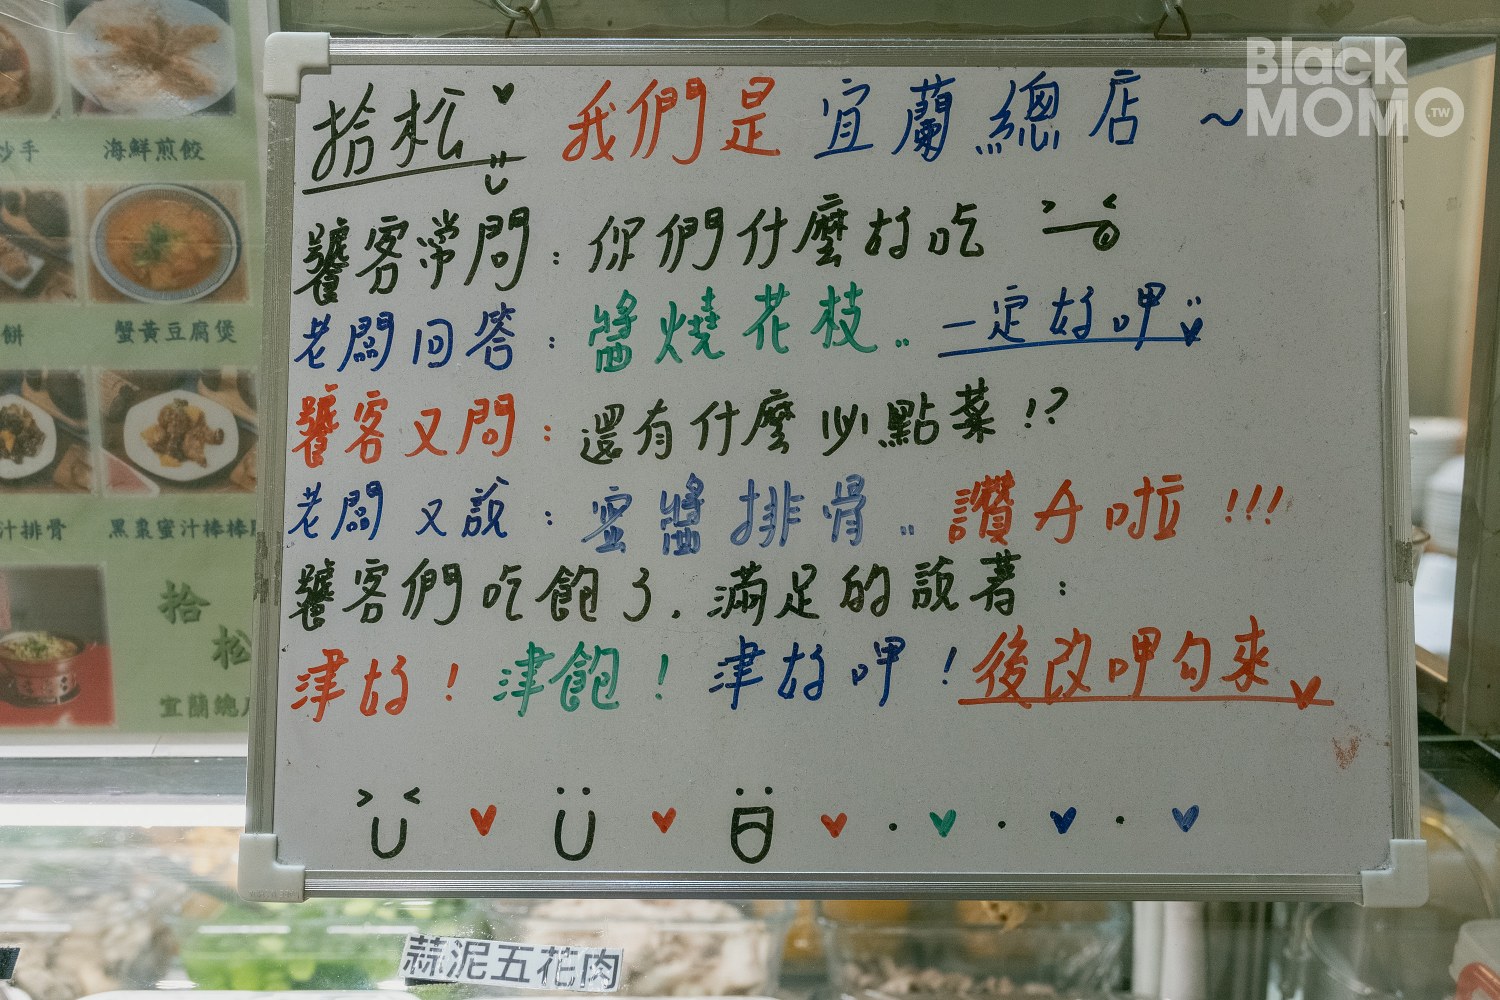 Black
MOMO.TW
拾松 我們是宜蘭總店 ~
饕客常問：你們什麼好吃
老闆回答：醬燒花枝.. 一定好呷
饕客又問：還有什麼必點菜!?
老闆又說：蜜醬排骨.. 讚ㄉ啦!!!
饕客們吃飽了. 滿足的說著：
津好！津飽！津好呷！後改呷勾來
炒手
海鮮煎餃
餅
蟹黃豆腐煲
汁排骨
黑棗蜜汁棒棒
拾
松
宜蘭總
蒜泥五花肉